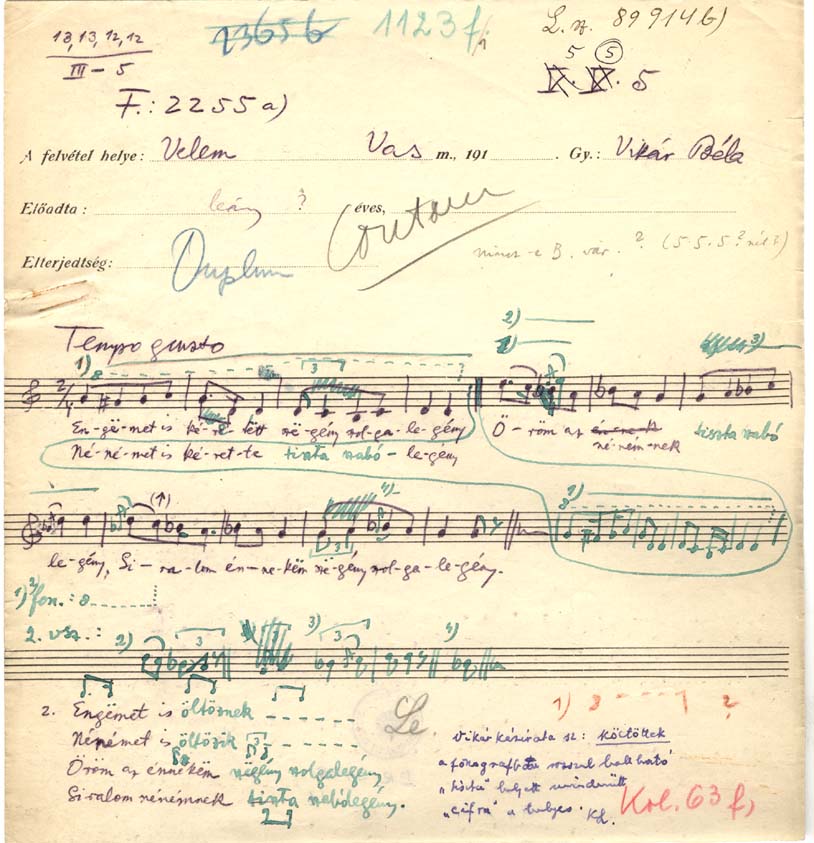 13, 13, 12, 12
III – 5
23656
1123 f,
L. sz. 89914 b)
5 5
5
F.: 2255 a)
A felvétel helye: Velem Vas m., 191 . Gy.: Vikár Béla
Előadta: leány ? éves,
Elterjedtség: Duplum
nincs-e B. vár. ? (5 5. 5 ?
Tempo giusto
1) 8
3
2)
3)
2/4
En-gë-met is ké-re-tëtt szë-gény szol-ga-le-gény
Ö-röm az tiszta szabó
Né-né-met is ké-ret-te tiszta szabó-le-gény
né-ném-nek
(↑)
4)
3
1)
le-gény, Si-ra-lom én-ne-këm szë-gény szol-ga-le-gény.
1) fon.: 8
2. vsz.: 2) 3 3) 3 4)
2. Engëmet is öltöznek
Nénémet is öltözik
Öröm az énnekëm szëgény szolgalegény
Siralom nénémnek tiszta szabólegény.
1) 8 ?
Vikár kézirata sz: köttöttek
a fonográfban rosszul hallható
"cifra" a helyes.
Kol. 63 f,